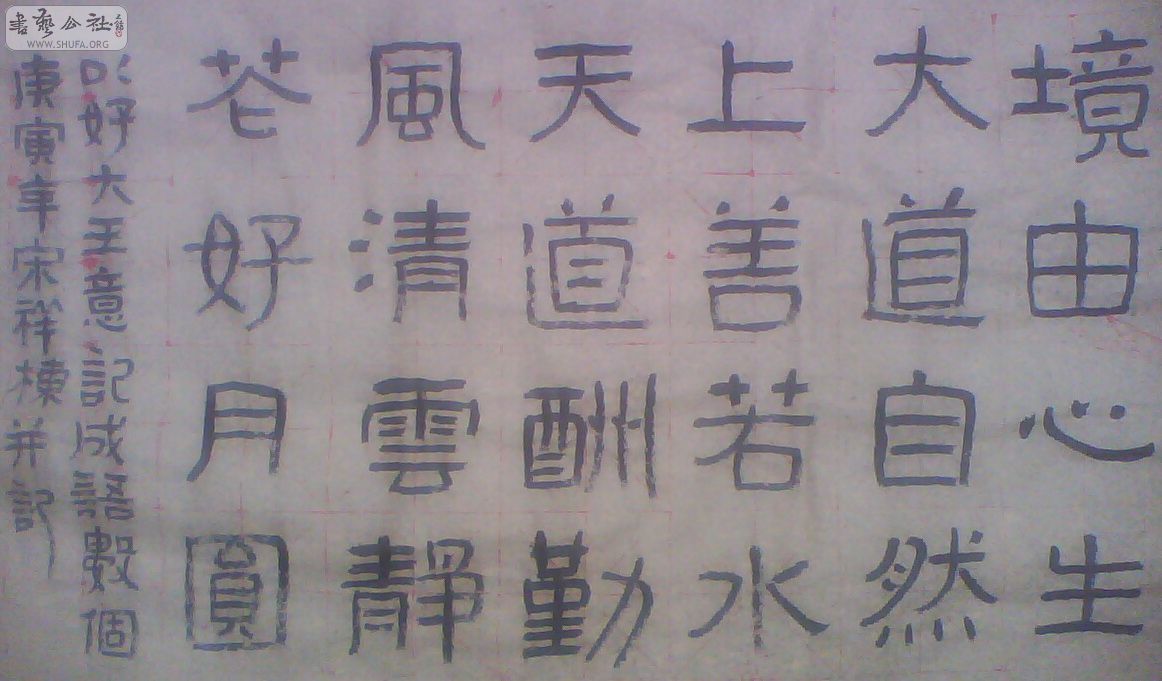 境由心生
大道自然
上善若水
天道酬勤
風清雲靜
花好月圓
以好大王意記成語數個
庚寅年宋祥棟并記
書藝公社
WWW.SHUFA.ORG